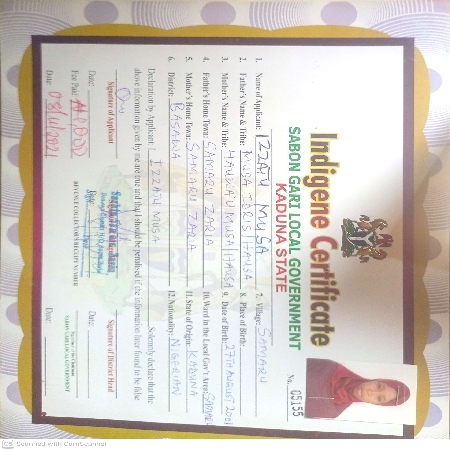 Indigene Certificate
SABON GARI LOCAL GOVERNMENT
KADUNA STATE
No. 05155
1. Name of Applicant: IZZATU MUSA
2. Father's Name & Tribe: MUSA IDRIS HAUSA
3. Mother's Name & Tribe: HAUWA'U MUSA HAUSA
4. Father's Home Town: SAMARU ZARIA
5. Mother's Home Town: SAMARU ZARIA
6. District: BASAWA
7. Village: SAMARU
8. Place of Birth:
9. Date of Birth: 27TH AUGUST 2001
10. Ward in the Local Gov't Area: SAMARU
11. State of Origin: KADUNA
12. Nationality: NIGERIAN
Declaration by Applicant: I IZZATU MUSA Solemnly declare that the
above information given by me are true and that I should be penalised if the information later found to be false
Signature of Applicant
Date:
Fee Paid:
Date: 03/11/2021
REVENUE COLLECTOR'S RECEIPT NUMBER
Signature of District Head
Date:
SABON GARI LOCAL GOVERNMENT
Date:
CS Scanned with CamScanner